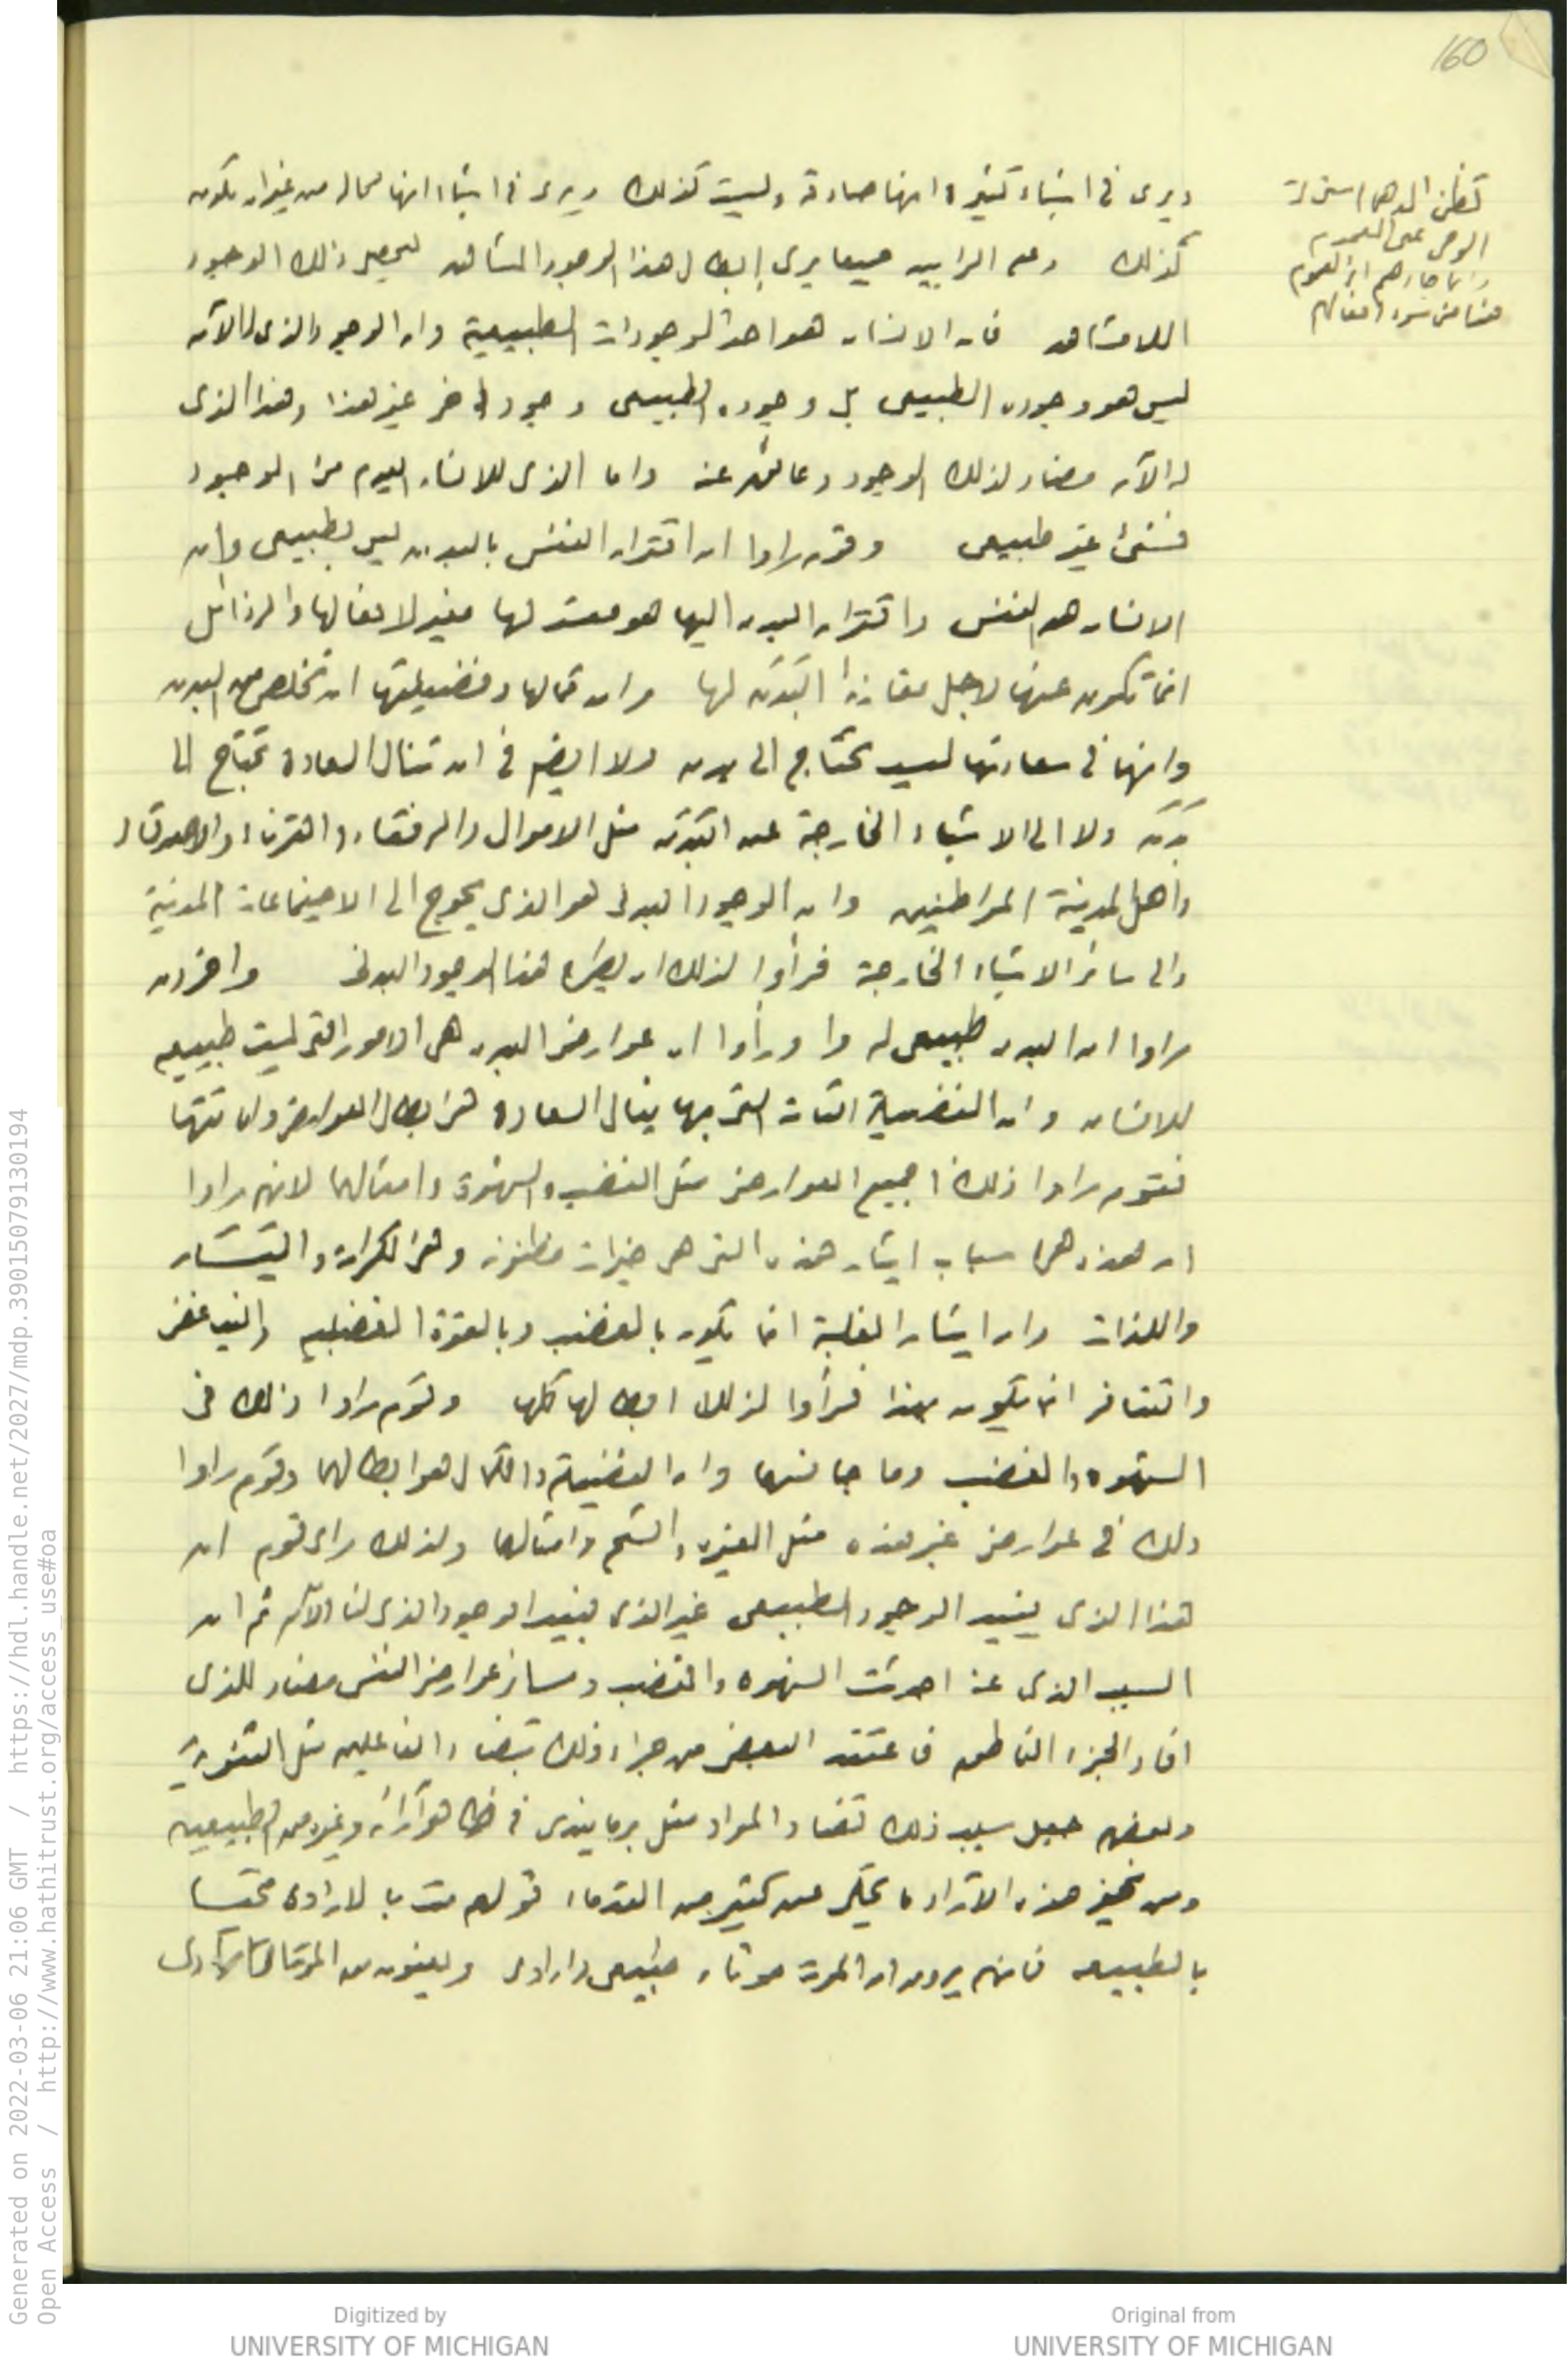 160
ويرى في اشياء كثيرة انها صادقة وليست كذلك ويرى في اشياء انها محاله من غير ان تكون
كذلك وعلى الرايين جميعا يرى إبطال هذا الوجود المشاهد ليحصل ذلك الوجود
اللامشاهد فان الانسان هو احد الموجودات الطبيعية وان الوجود الذى له الآن
ليس هو وجوده الطبيعى بل وجوده الطبيعى وجود اخر غير هذا وهذا الذى
له الآن مضاد لذلك الوجود وعائق عنه واما الذى للانسان اليوم من الوجود
فشئ غير طبيعى وقوم راوا ان اقتران النفس بالبدن ليس بطبيعى وان
الانسان هو النفس واقتران البدن اليها هو مفسد لها مغير لافعالها والرذائل
انما تكون عنها لاجل مقارنة البدن لها وان كمالها وفضيلتها ان تخلص من البدن
وانها فى سعادتها ليست تحتاج الى بدن ولا ايضا فى ان تنال السعادة تحتاج الى
بدن ولا الى الاشياء الخارجة عن البدن مثل الاموال والرفقاء والقرناء والاصدقاء
واهل المدينة المواطنين وان الوجود البدنى هو الذى يحوج الى الاجتماعات المدنية
والى سائر الاشياء الخارجة فرأوا لذلك ان يطرح هذا الوجود البدنى واخرون
راوا ان البدن طبيعى له ورأوا ان عوارض البدن هى الامور التى ليست طبيعيه
للانسان وان الفضيلة التامة التى بها ينال السعادة هى ابطال العوارض واماتتها
فقوم راوا ذلك فى جميع العوارض مثل الغضب والشهوة وامثالهما لانهم راوا
ان هذه هى اسباب ايثار هذه التى هى خيرات مظنونه وهى الكرامة واليسار
واللذات وان ايثار الغلبة انما تكون بالغضب وبالقوة الغضبيه والتباغض
والتنافر انما يكون بهذا فرأوا لذلك ابطالها كلها وقوم راوا ذلك فى
الشهوه والغضب وما جانسهما وان الفضيلة والكمال هو ابطالهما وقوم راوا
ذلك فى عوارض غير هذه مثل الغيره والشح وامثالهما ولذلك راى قوم ان
هذا الذى يفيد الوجود الطبيعى غير الذى يفيد الوجود الذى لنا الآن ثم ان
السبب الذى عنه احدثت الشهوه والغضب وسائر عوارض النفس مضاد للذى
افاد الجزء الناطق فاعتقد البعض من جراء ذلك تضاد الفاعلين مثل الثنوية
وبعضهم جعل سبب ذلك تضاد المواد مثل برمانيدى فى ظاهر آرائه وغيره من الطبيعيين
ومن نحو هذه الآراء ما يحكى عن كثير من القدماء قولهم مت بالارادة تحيا
بالطبيعه فانهم يرون ان الموت موتان طبيعى وارادى ويعنون من الموت الارادى